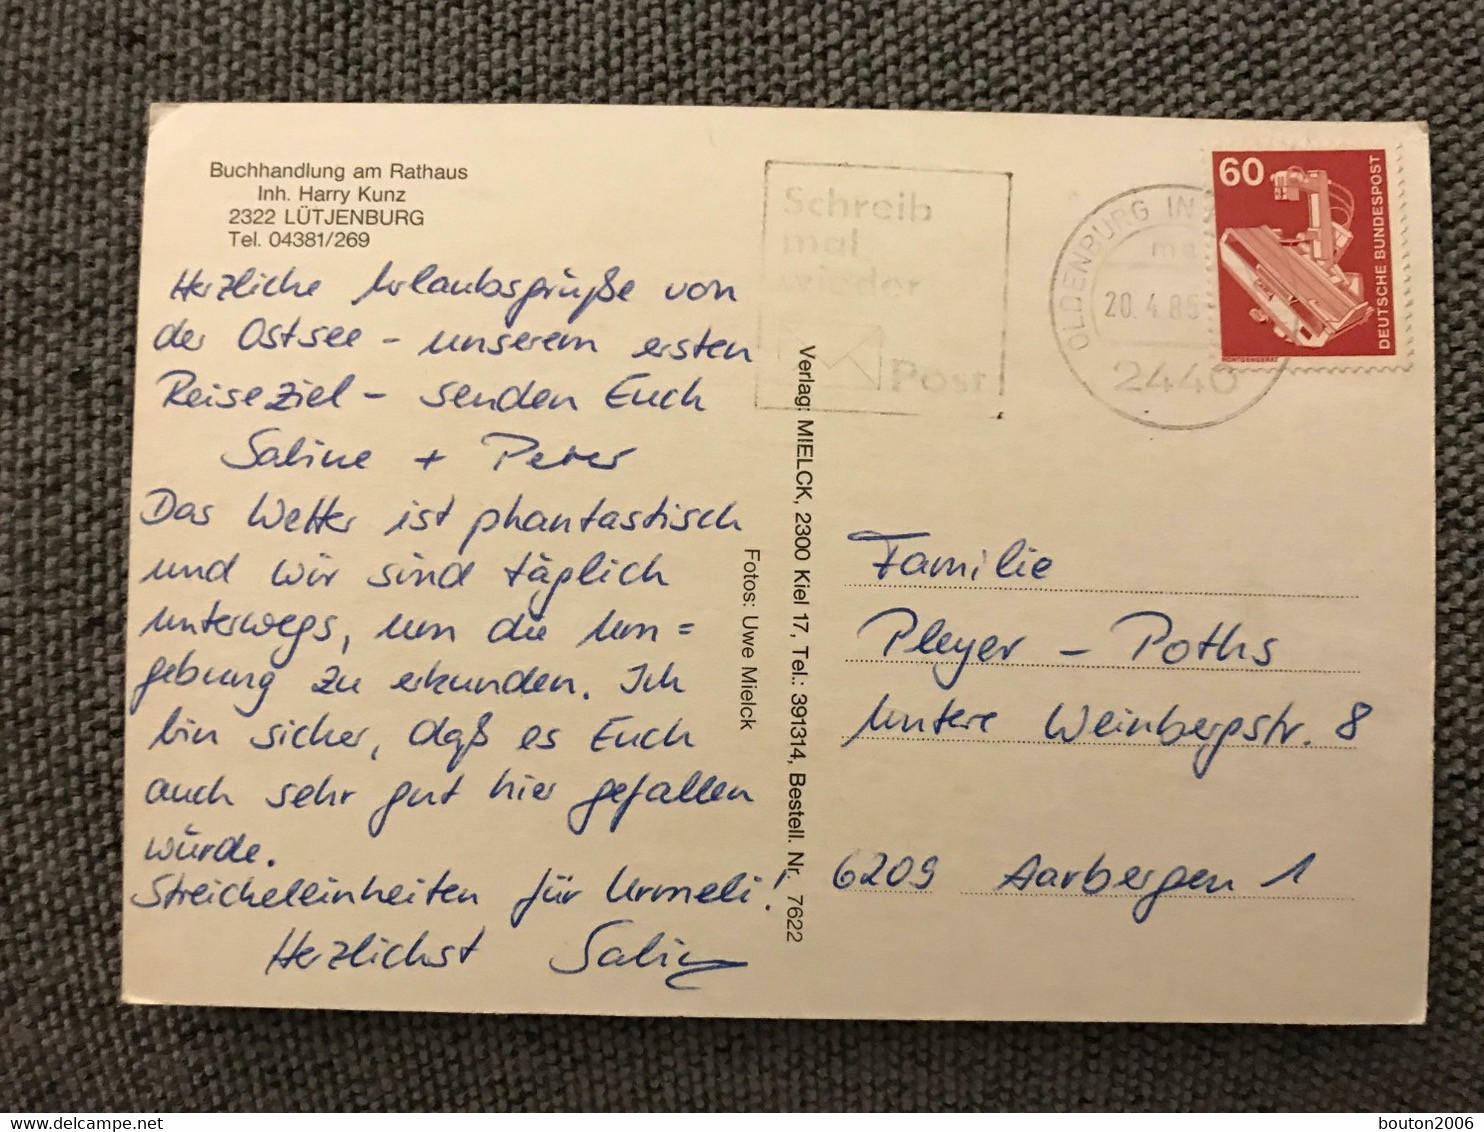 Buchhandlung am Rathaus
Inh. Harry Kunz
2322 LÜTJENBURG
Tel. 04381/269
Herzliche Urlaubsgrüße von
der Ostsee - unserem ersten
Reiseziel - senden Euch
Sabine + Peter
Das Wetter ist phantastisch
und wir sind täglich
unterwegs, um die Um=
gebung zu erkunden. Ich
bin sicher, daß es Euch
auch sehr gut hier gefallen
würde.
Streicheleinheiten für Urmeli!
Herzlichst Sabine
Verlag: MIELCK, 2300 Kiel 17, Tel.: 391314, Bestell. Nr. 7622
Fotos: Uwe Mielck
Schreib
mal
wieder
Post
OLDENBURG IN
20.4.85
2440
60
DEUTSCHE BUNDESPOST
RÖNTGENGERÄT
Familie
Pleyer - Poths
Untere Weinbergstr. 8
6209 Aarbergen 1
bouton2006